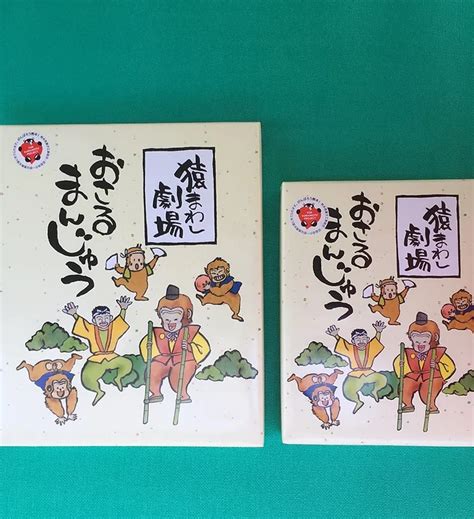 猿まわし
劇場
おさる
まんじゅう
猿まわし
劇場
おさる
まんじゅう